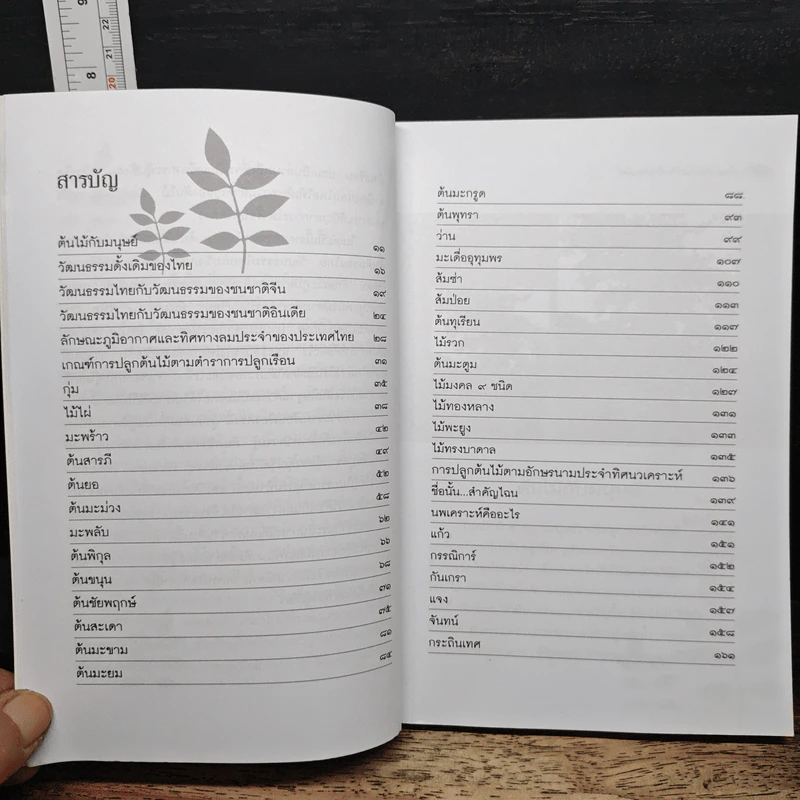 22
21
20
8
สารบัญ
ต้นไม้กับมนุษย์ ๑๑
วัฒนธรรมดั้งเดิมของไทย ๑๖
วัฒนธรรมไทยกับวัฒนธรรมของชนชาติจีน ๑๙
วัฒนธรรมไทยกับวัฒนธรรมของชนชาติอินเดีย ๒๔
ลักษณะภูมิอากาศและทิศทางลมประจำของประเทศไทย ๒๘
เกณฑ์การปลูกต้นไม้ตามตำราการปลูกเรือน ๓๑
กุ่ม ๓๕
ไม้ไผ่ ๓๘
มะพร้าว ๔๒
ต้นสารภี ๔๙
ต้นยอ ๕๒
ต้นมะม่วง ๕๘
มะพลับ ๖๒
ต้นพิกุล ๖๖
ต้นขนุน ๖๘
ต้นชัยพฤกษ์ ๗๑
ต้นสะเดา ๗๕
ต้นมะขาม ๘๑
ต้นมะยม ๘๔
ต้นมะกรูด ๘๘
ต้นพุทรา ๙๓
ว่าน ๙๙
มะเดื่ออุทุมพร ๑๐๗
ส้มซ่า ๑๑๐
ส้มป่อย ๑๑๓
ต้นทุเรียน ๑๑๗
ไม้รวก ๑๒๒
ต้นมะตูม ๑๒๔
ไม้มงคล ๙ ชนิด ๑๒๗
ไม้ทองหลาง ๑๓๑
ไม้พะยูง ๑๓๓
ไม้ทรงบาดาล ๑๓๕
การปลูกต้นไม้ตามอักษรนามประจำทิศนวเคราะห์ ๑๓๖
ชื่อนั้น...สำคัญไฉน ๑๓๙
นพเคราะห์คืออะไร ๑๔๑
แก้ว ๑๕๑
กรรณิการ์ ๑๕๒
กันเกรา ๑๕๔
แจง ๑๕๗
จันทน์ ๑๕๘
กระถินเทศ ๑๖๑